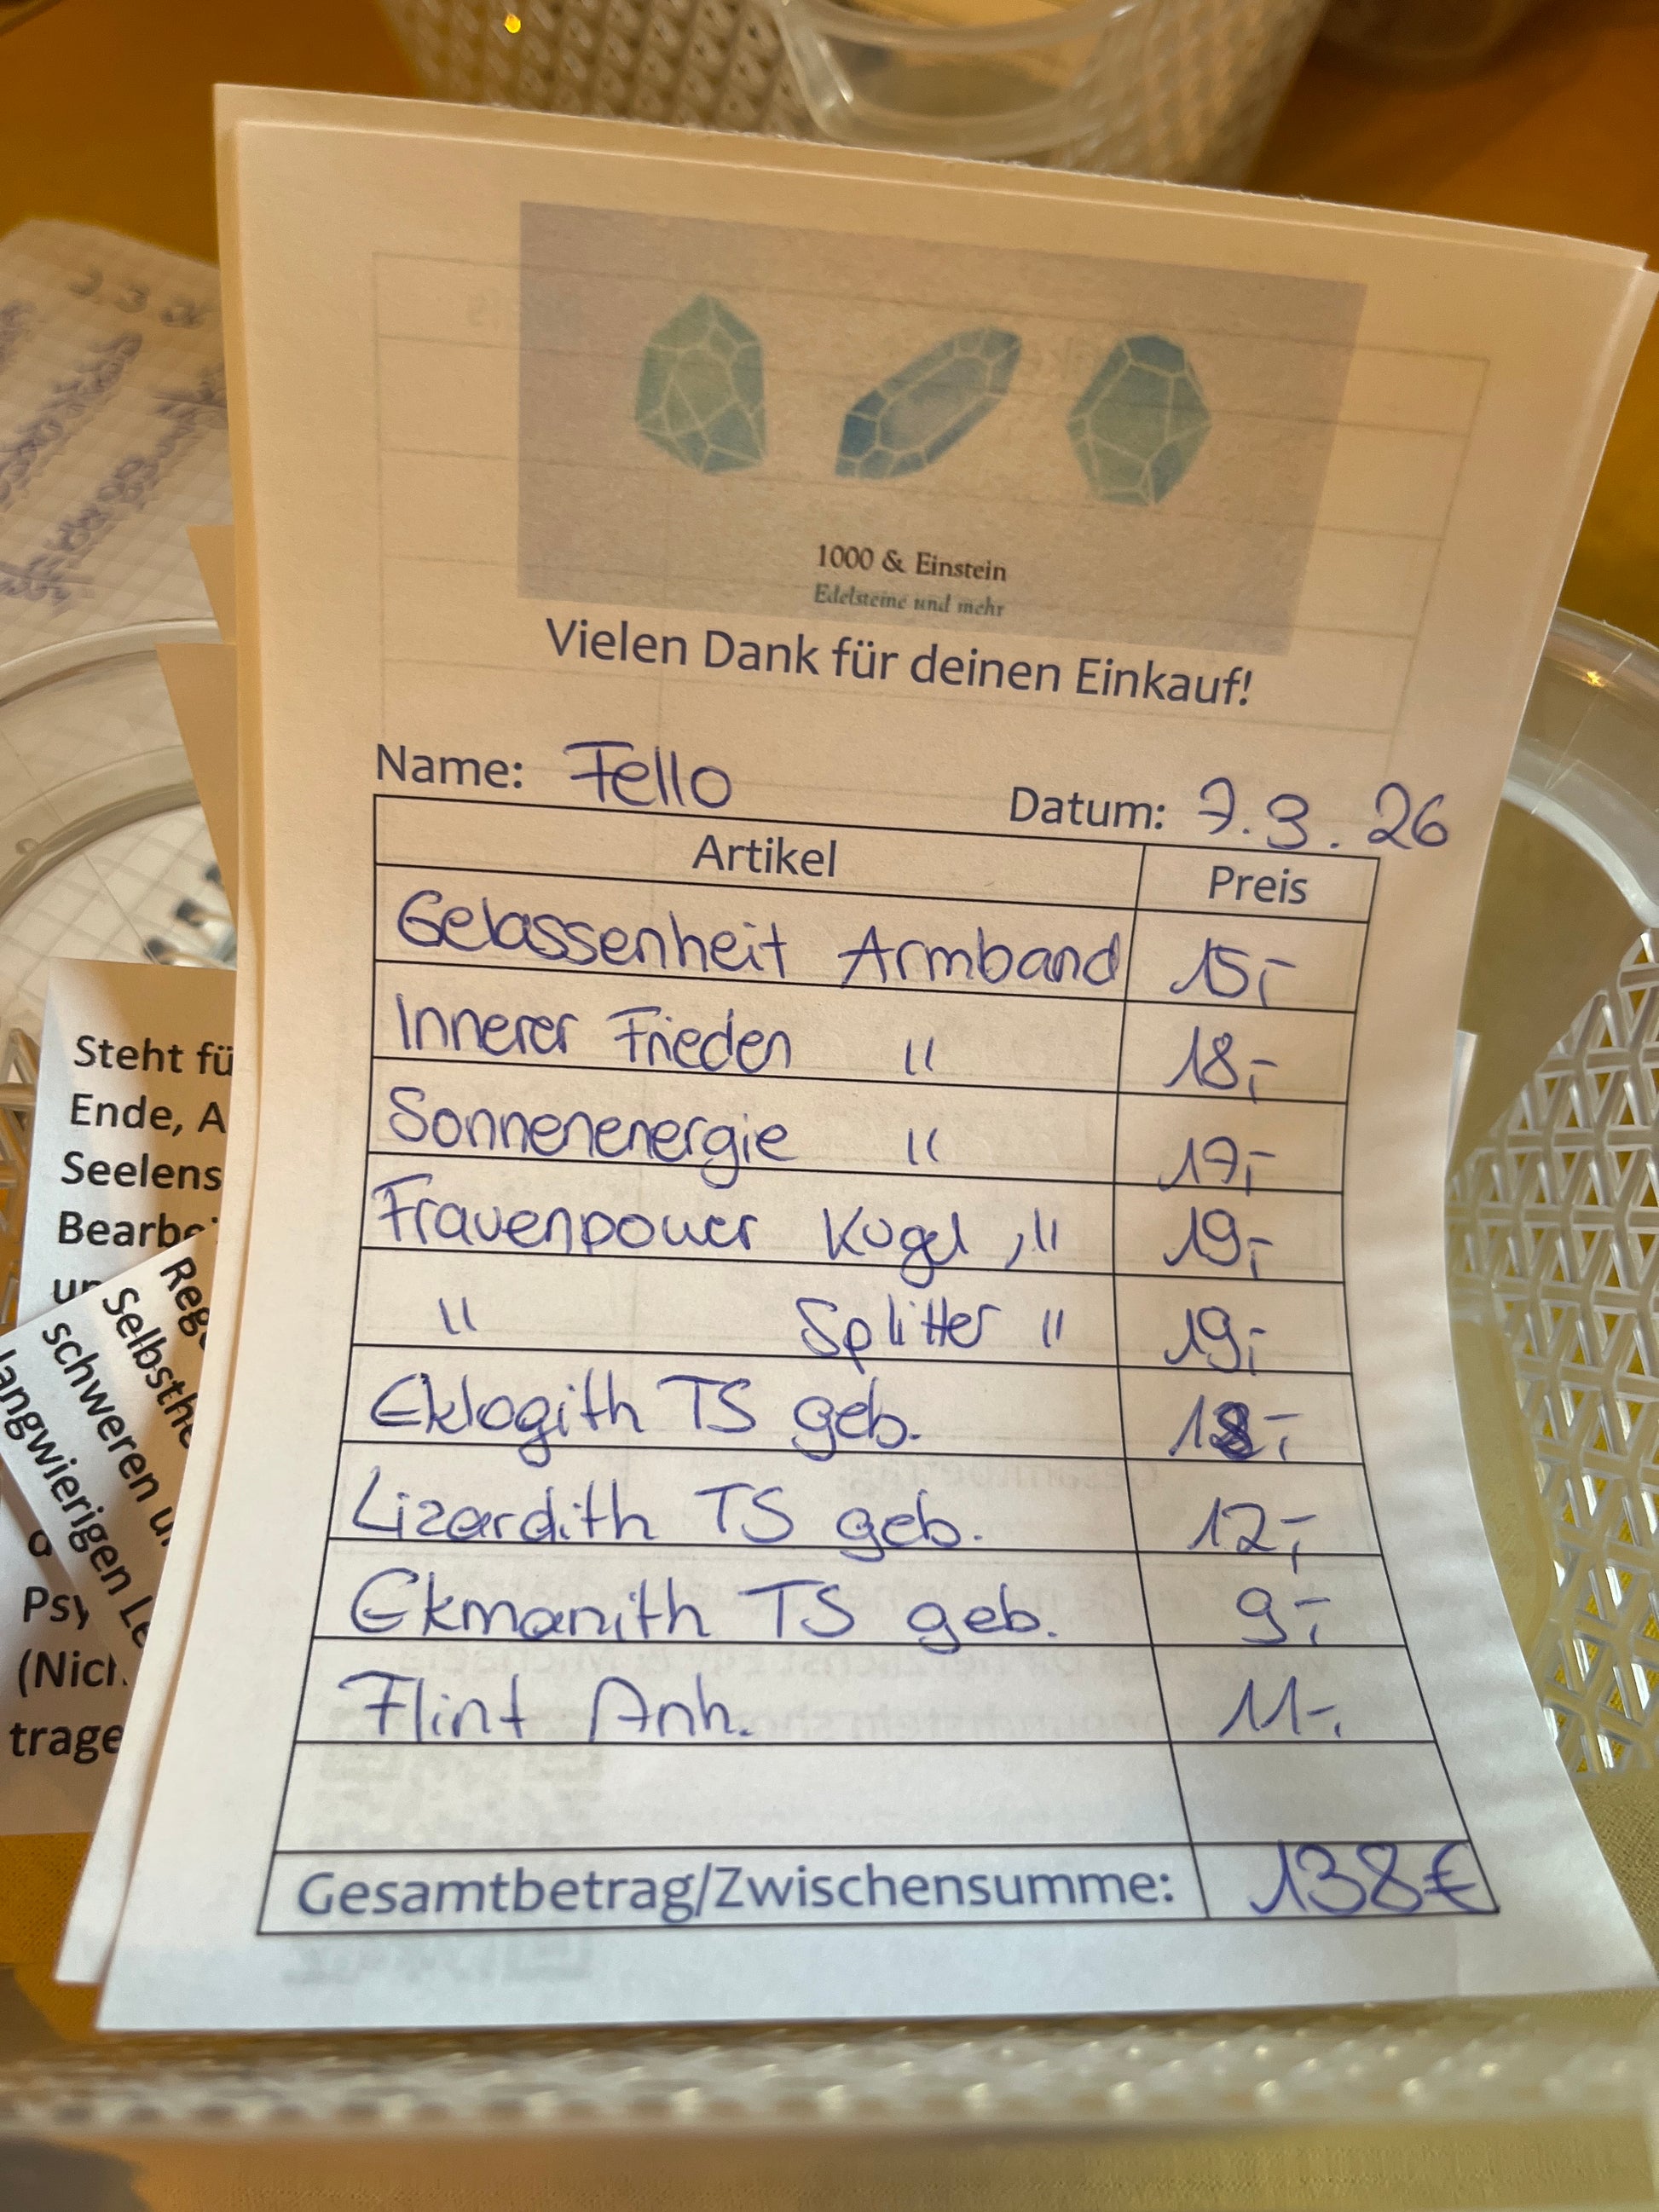 1000 & Einstein
Edelsteine und mehr
Vielen Dank für deinen Einkauf!
Name: Fello Datum: 7.3.26
Artikel Preis
Gelassenheit Armband 15,-
Innerer Frieden " 18,-
Sonnenenergie " 17,-
Frauenpower Kugel, " 19,-
" Splitter " 19,-
Eklogith TS geb. 18,-
Lizardith TS geb. 12,-
Ekmanith TS geb. 9,-
Flint Anh. 11-,
Gesamtbetrag/Zwischensumme: 138€
Steht fü
Ende, A
Seelens
Bearbe
Psy
(Nich
trage
Rege
Selbsthe
schweren u
langwierigen Le